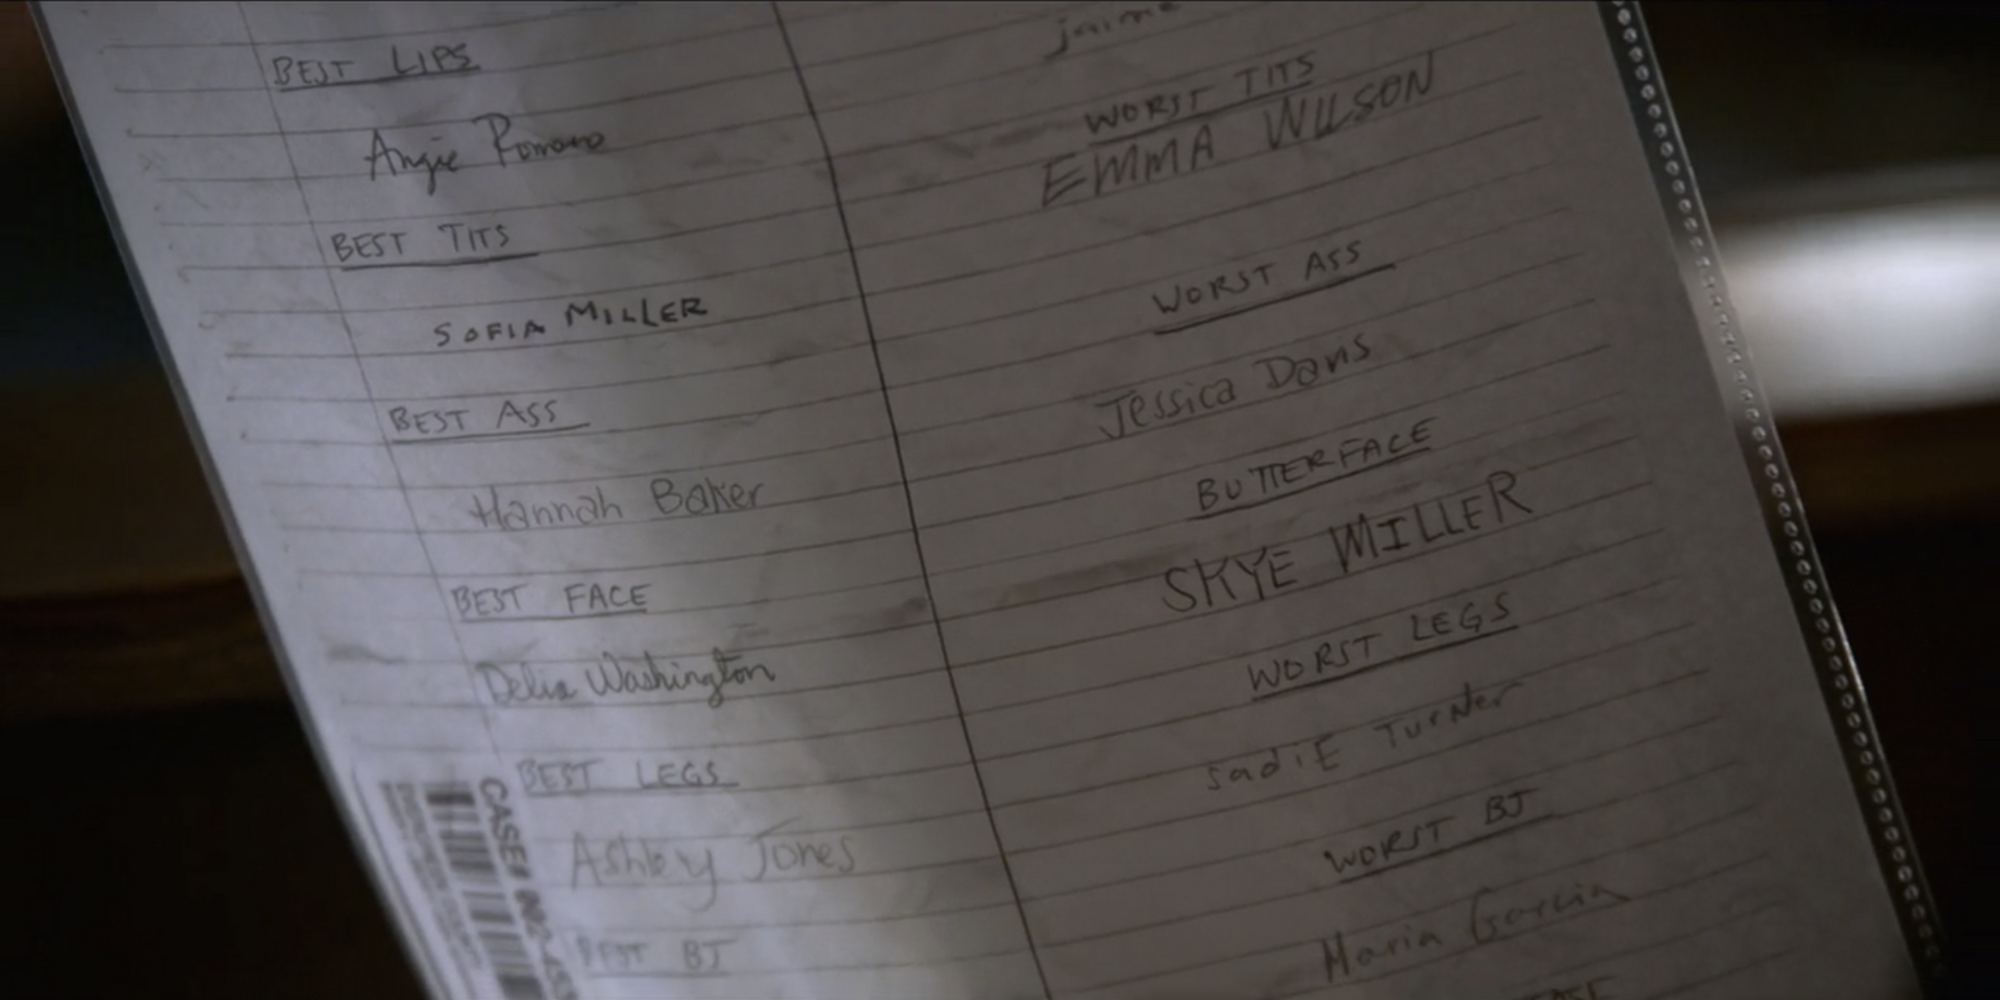 BEST LIPS
Angie Romano
BEST TITS
SOFIA MILLER
BEST ASS
Hannah Baker
BEST FACE
Delia Washington
BEST LEGS
Ashley Jones
BEST BJ
jaime
WORST TITS
EMMA WILSON
WORST ASS
Jessica Davis
BUTTERFACE
SKYE MILLER
WORST LEGS
sadiE TurNer
WORST BJ
Maria Garcia
CASE#